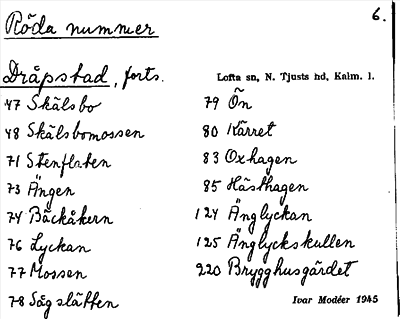 Röda nummer
6.
Dråpstad, forts.
Lofta sn, N. Tjusts hd, Kalm. l.
47 Skälsbo
48 Skälsbomossen
71 Stenflaten
73 Ängen
74 Bäckåkern
76 Lyckan
77 Mossen
78 Sågslätten
79 Ön
80 Kärret
83 Oxhagen
85 Hästhagen
124 Änglyckan
125 Änglyckskullen
220 Brygghusgärdet
Ivar Modéer 1945